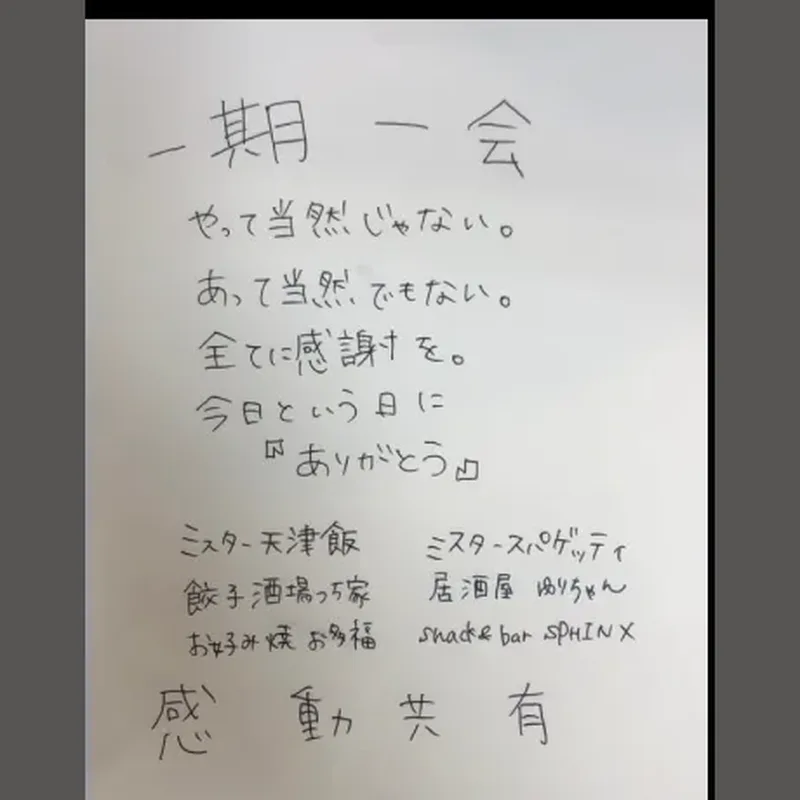 一期一会
やって当然じゃない。
あって当然でもない。
全てに感謝を。
今日という日に
『ありがとう』
ミスター天津飯 ミスタースパゲッティ
餃子酒場っち家 居酒屋 ゆりちゃん
お好み焼 お多福 snack&bar SPHINX
感動共有